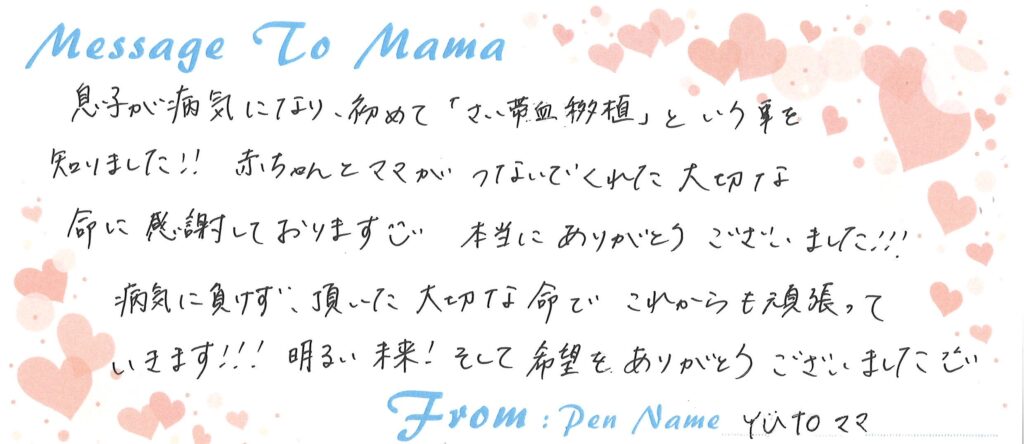 Message To Mama
息子が病気になり、初めて「さい帯血移植」という事を
知りました!! 赤ちゃんとママがつないでくれた大切な
命に感謝しております 本当にありがとうございました!!!
病気に負けず、頂いた大切な命でこれからも頑張って
いきます!!! 明るい未来!そして希望をありがとうございました
From : Pen Name YUtoママ